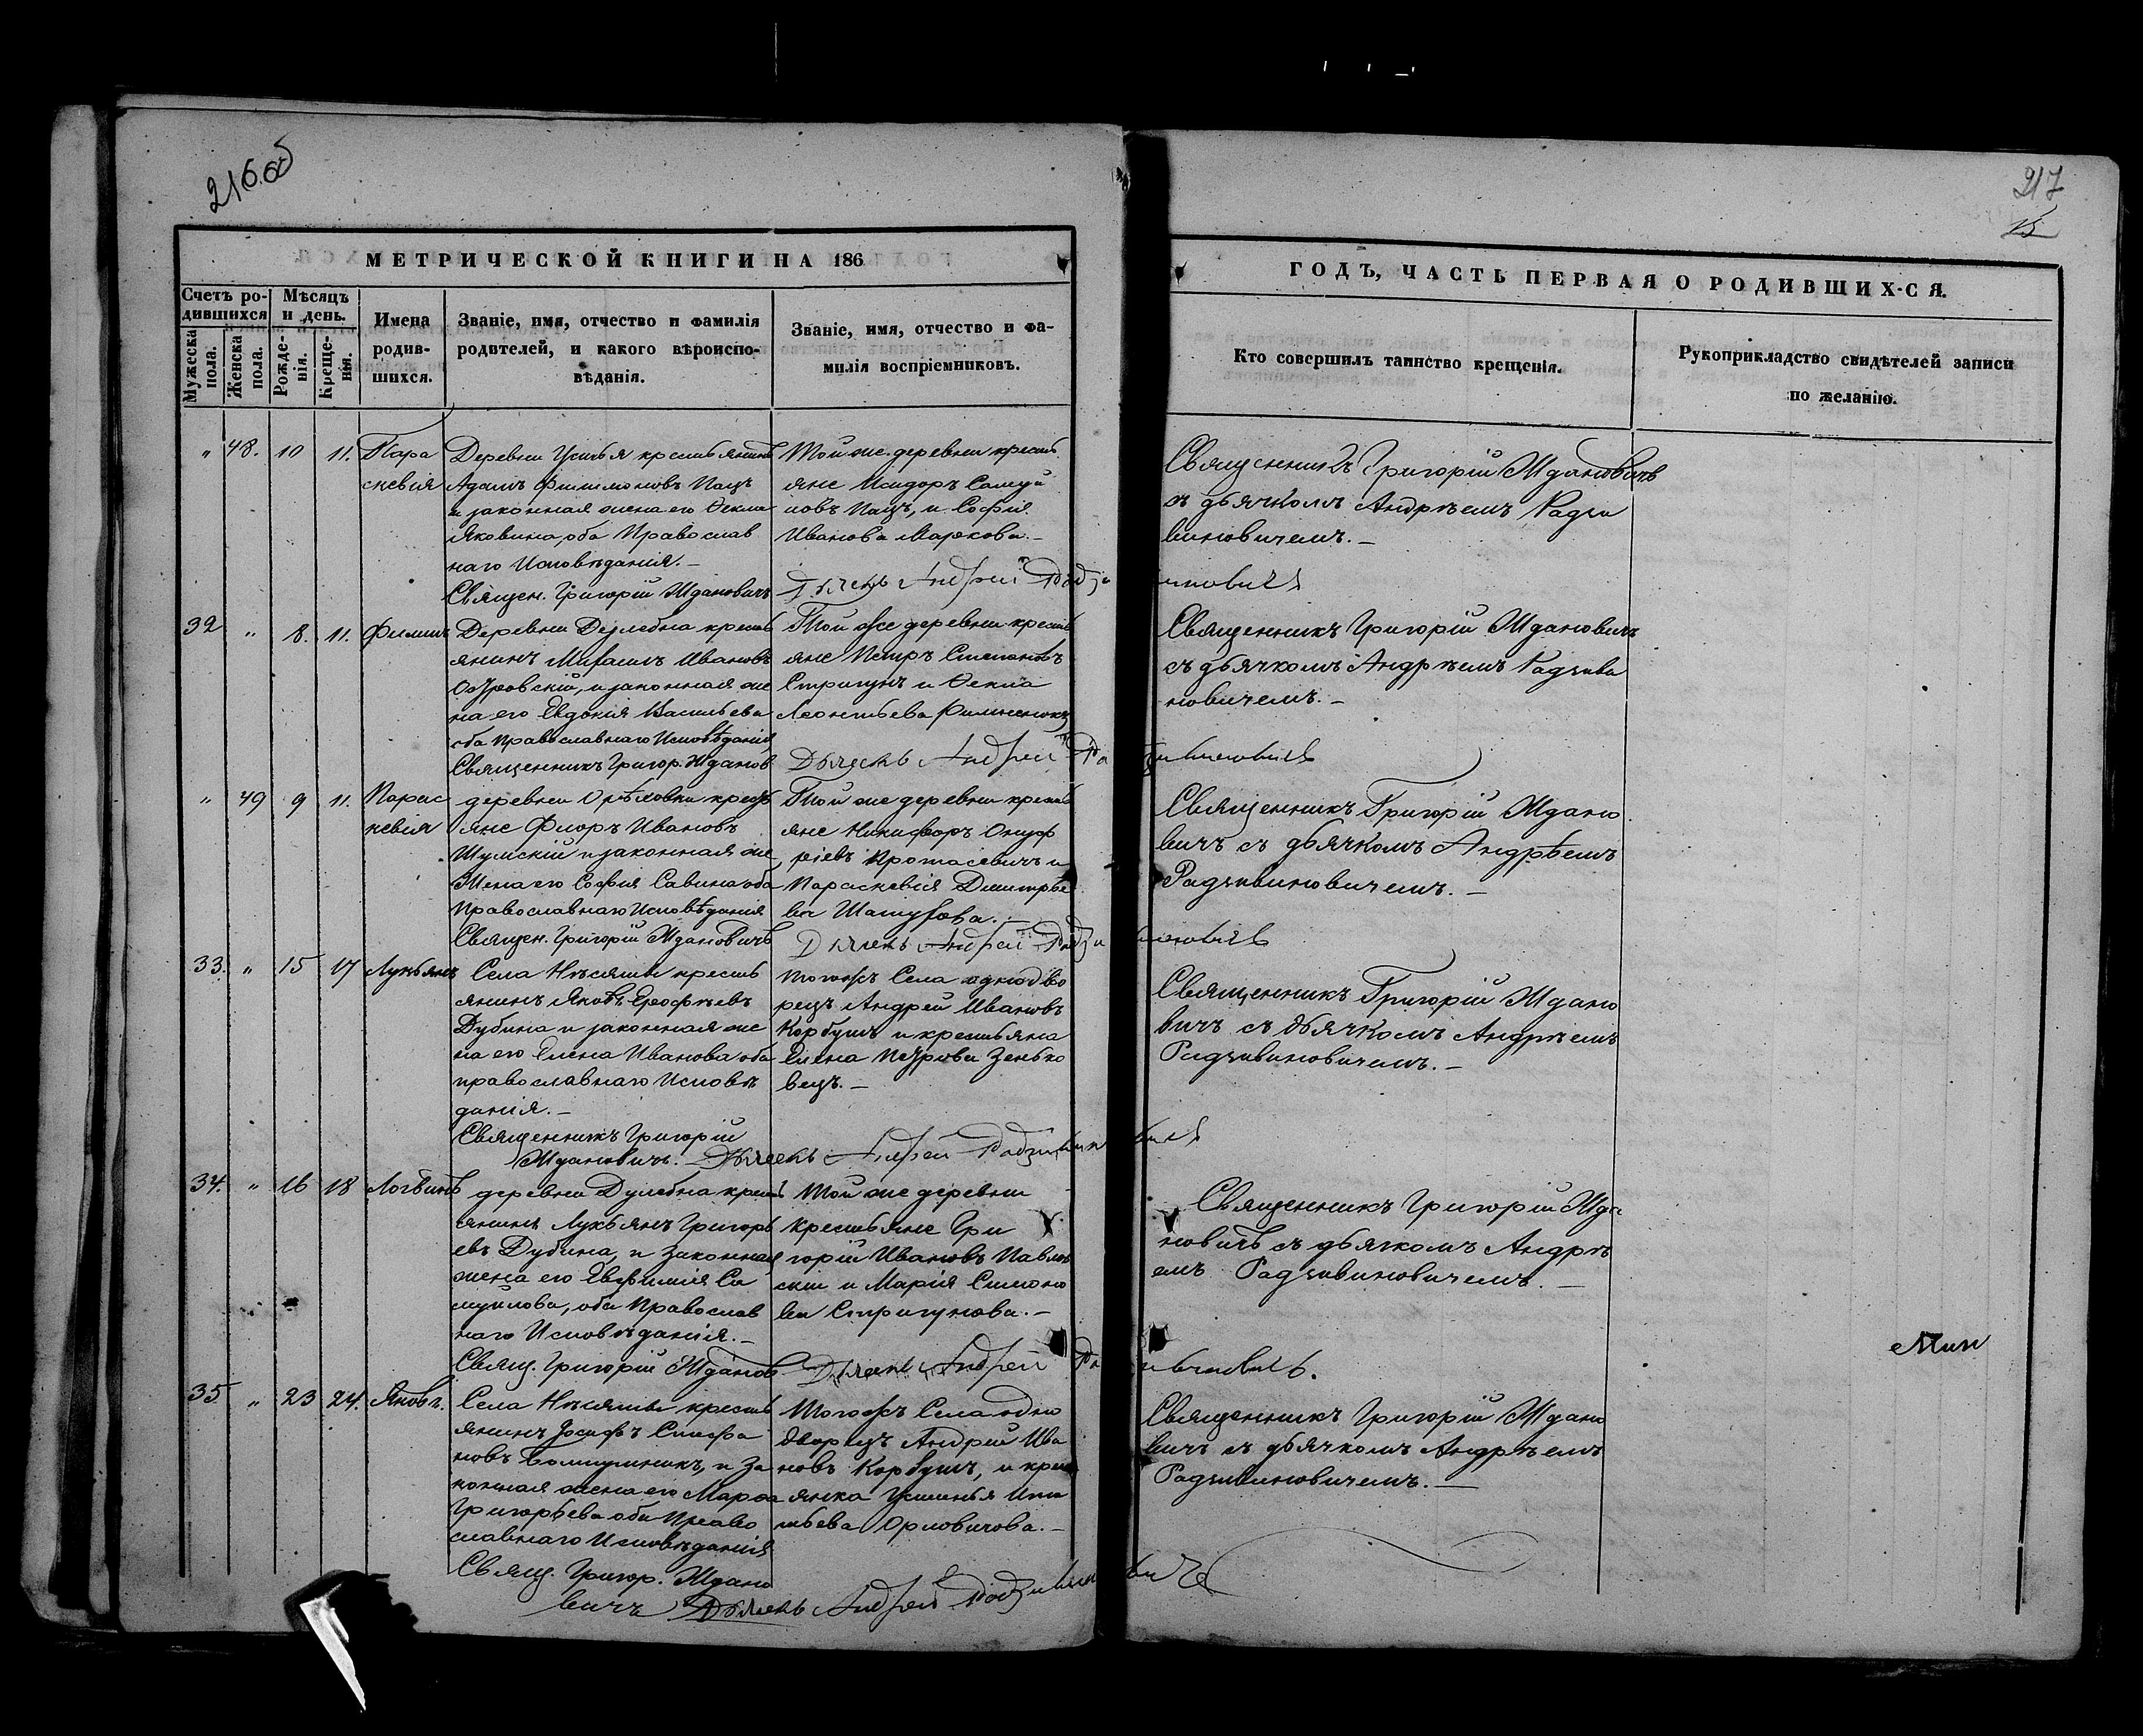 216 об
217
15
МЕТРИЧЕСКОЙ КНИГИ НА 186
ГОДЪ, ЧАСТЬ ПЕРВАЯ О РОДИВШИХ-СЯ.
Счетъ ро-
дившихся
Мужеска
пола.
Женска
пола.
Мѣсяцъ
и день.
Рожде-
нія.
Креще-
нія.
Имена
родив-
шихся.
Званіе, имя, отчество и фамилія
родителей, и какого вѣроиспо-
вѣданія.
Званіе, имя, отчество и фа-
милія воспріемниковъ.
Кто совершилъ таинство крещенія.
Рукоприкладство свидѣтелей записи
по желанію.
" 48. 10 11.
Пара
скевія
Деревни крестьянинъ
Адамъ Филимоновъ Пацъ
и законная жена его Ѳекла
Яковина, оба Православ
наго Исповѣданія.-
Священ. Григорій Ждановичъ
Той же деревни кресть
яне Исидоръ Самуй
ловъ Пацъ, и Софія
Иванова Маркова.-
Дьячекъ Андрей Радзивиновичъ
Священникъ Григорій Ждановичъ
съ дьячкомъ Андреемъ Радзи
виновичемъ.-
32 " 8. 11. Филипъ
Деревни кресть
янинъ Михаилъ Ивановъ
Островскій, и законная же
на его Евдокія Васильева
оба православнаго Исповѣданія
Священникъ Григор. Жданов
Той же деревни кресть
яне Петръ Степановъ
Стригунъ и Ѳекла
Леонтьева
Дьячекъ Андрей Радзивиновичъ
Священникъ Григорій Ждановичъ
съ дьячкомъ Андреемъ Радзиви
новичемъ.-
" 49 9 11.
Парас
кевія
деревни Орѣховки кресть
яне Флоръ Ивановъ
Шумскій и законная же
Жена его Софія Савина оба
Православнаго Исповѣданія
Священ. Григорій Ждановичъ
Той же деревни кресть
яне Никифоръ Онуф
ріевъ Протасевичъ и
Параскевія Дмитріе
ва
Дьячекъ Андрей Радзивиновичъ
Священникъ Григорій Ждано
вичъ съ дьячкомъ Андрѣемъ
Радзивиновичемъ.-
33. " 15 17 Лукьянъ
Села Нѣсяты кресть
янинъ Яковъ Ерофѣевъ
Дубина и законная же
на его Елена Иванова оба
православнаго Исповѣ
данія.-
Священникъ Григорій
Ждановичъ.
Тогожъ Села однодво
рецъ Андрей Ивановъ
Корбутъ и крестьяна
Елена Петрова Зенько
вецъ.-
Дьячекъ Андрей Радзивиновичъ
Священникъ Григорій Ждано
вичъ съ дьячкомъ Андреемъ
Радзивиновичемъ.-
34. " 16 18 Логвинъ
деревни Дулебна кресть
янинъ Лукьянъ Григорь
евъ Дубина, и законная
жена его Евфимія Са
муйлова, оба Православ
наго Исповѣданія.-
Свящ. Григорій Жданов
Той же деревни
крестьяне Гри
горій Ивановъ Павлов
скій и Марія Симоно
ва Стригунова.-
Дьячекъ Андрей Радзивиновичъ.
Священникъ Григорій Жда
новичъ съ дьячкомъ Андре
емъ Радзивиновичемъ.-
35 " 23 24. Яковъ.
Села Нѣсяты кресть
янинъ Іосифъ Стефа
новъ и за
конная жена его Марѳа
Григорьева оба Право
славнаго Исповѣданія
Свящ. Григор. Ждано
вичъ
Тогожъ Села одно
дворецъ Андрей Ива
новъ Корбутъ, и крест
янка Устинья Ипа
тьева Орловичова.-
Дьячекъ Андрей Радзивиновичъ
Священникъ Григорій Ждано
вичъ съ дьячкомъ Андреемъ
Радзивиновичемъ.-